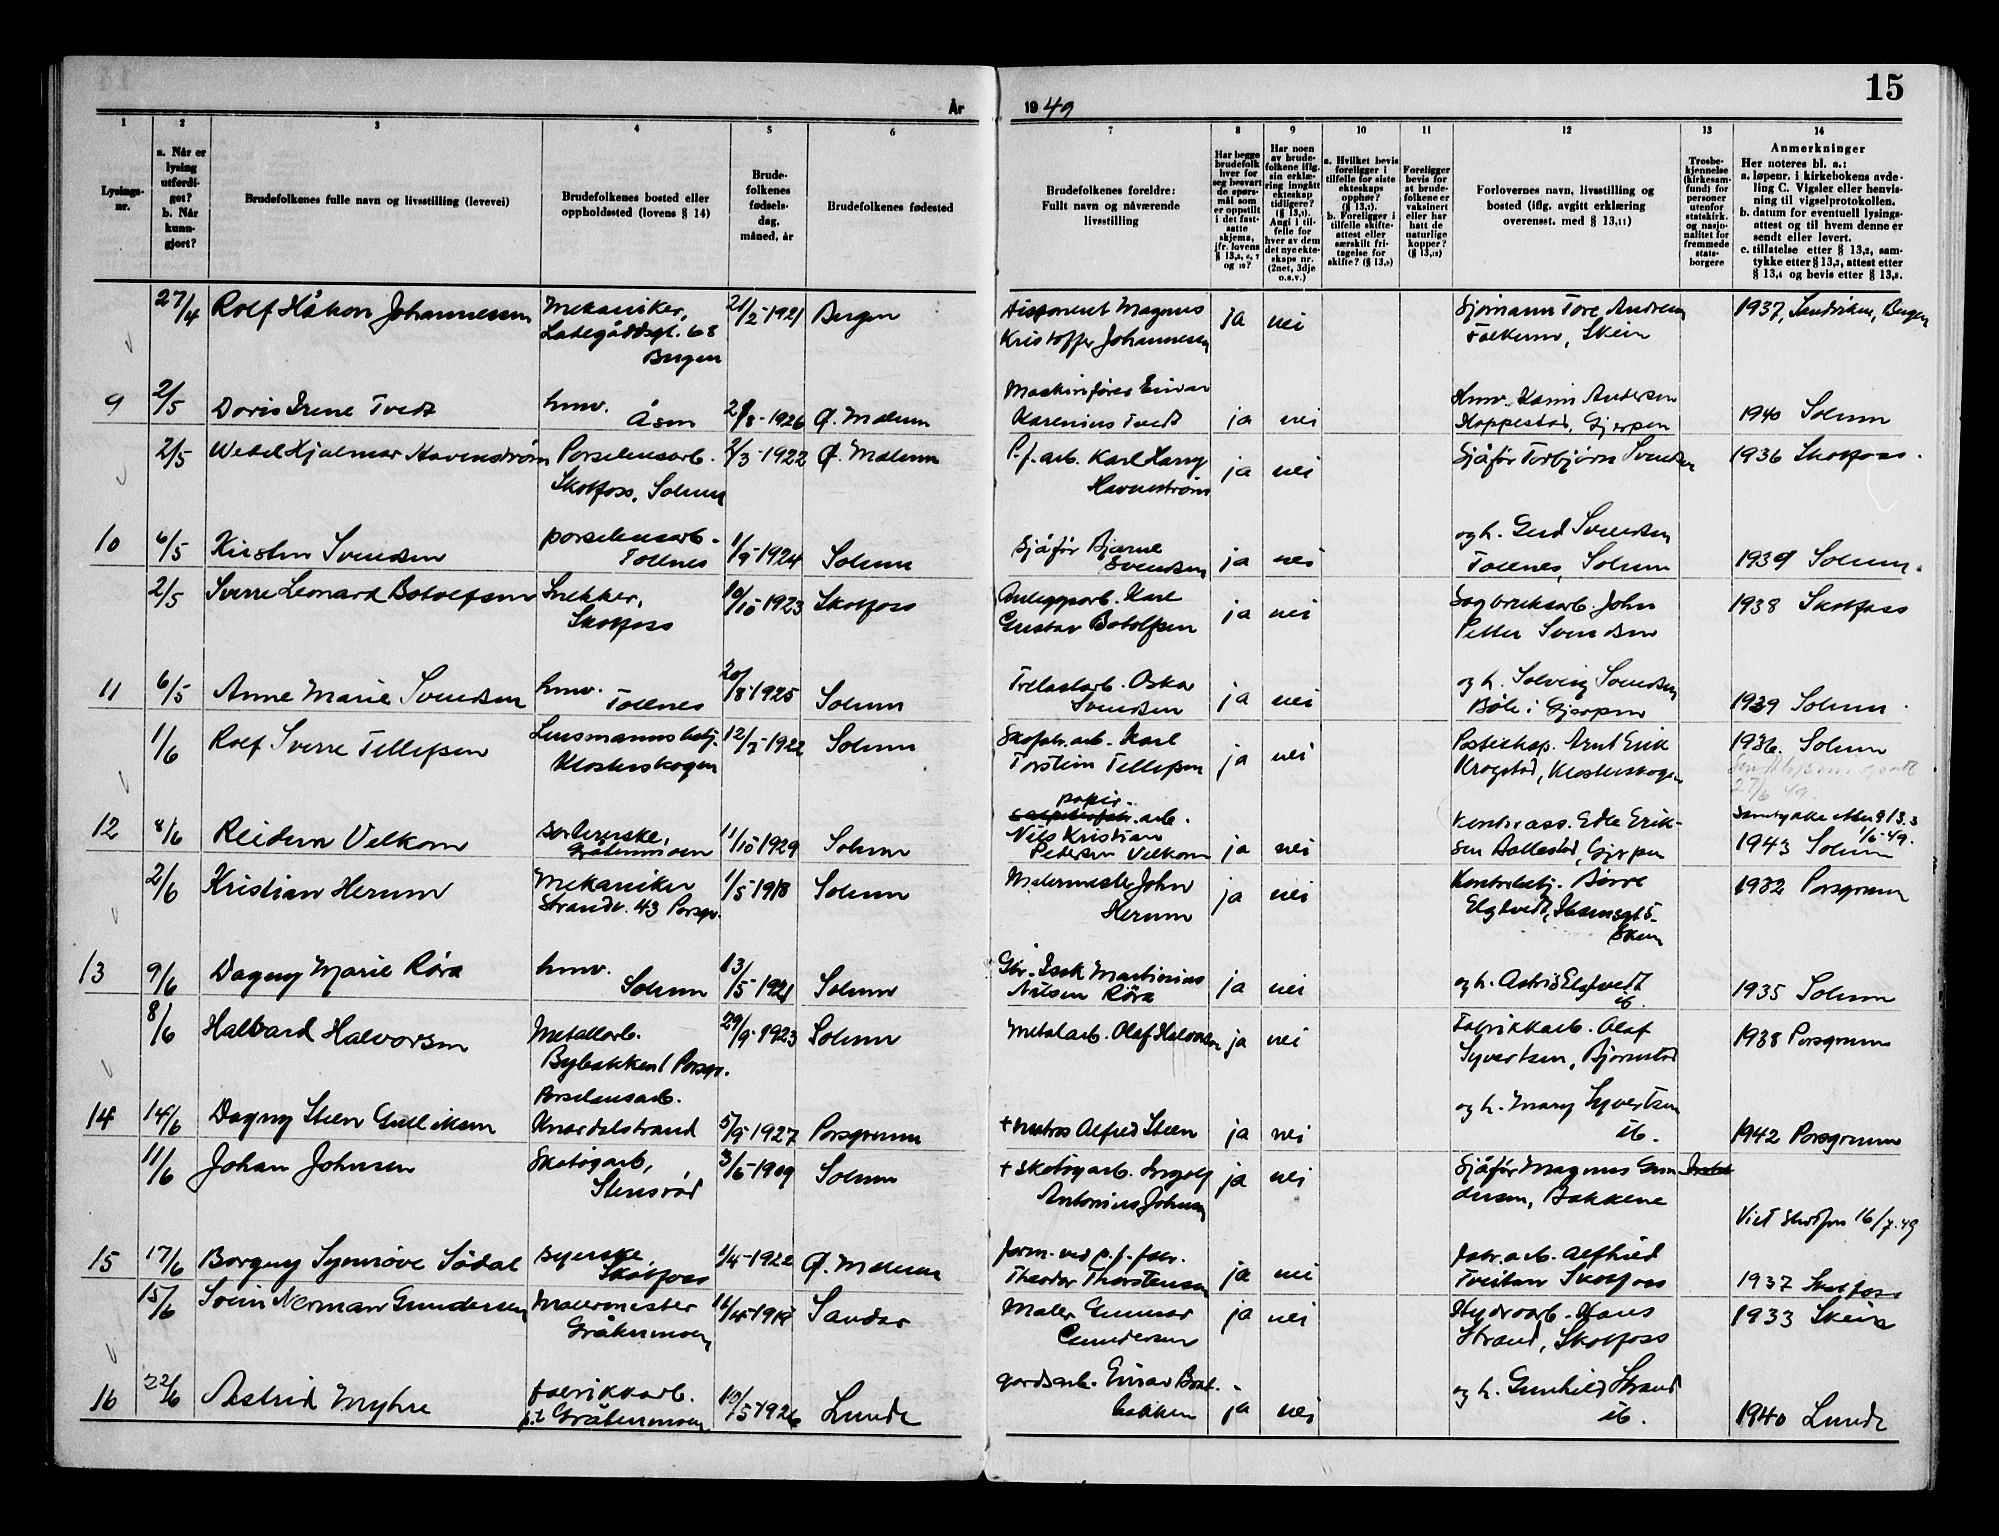 År 1949
15
1 2 3 4 5 6 7 8 9 10 11 12 13 14
Lysings-
nr.
a. Når er
lysing
utferdi-
get?
b. Når
kunn-
gjort?
Brudefolkenes fulle navn og livsstilling (levevei)
Brudefolkenes bosted eller
oppholdssted (lovens § 14)
Brude-
folkenes
fødsels-
dag,
måned, år
Brudefolkenes fødested
Brudefolkenes foreldre:
Fullt navn og nåværende
livsstilling
Har begge
brudefolk
hver for
seg besvart
de spørs-
mål som
er oppstilt
i det fast-
satte
skjema,
jfr. lovens
og 10?
Har noen
av brude-
folkene iflg.
sin erklæ-
ring inngått
ekteskap
tidligere?
(§ 13,7).
Angi i til-
felle for
hver av dem
det nye ekte-
skaps nr.
(2net, 3dje
o.s.v.)
a. Hvilket bevis
foreligger i
tilfelle for siste
ekteskaps
opphør?
b. Foreligger i
tilfelle skifte-
attest eller
særskilt fri-
tagelse for
skifte? (§ 13,9)
Foreligger
bevis for
at brude-
folkene er
vaksinert
eller har
hatt de
naturlige
kopper?
(§ 13,12)
Forlovernes navn, livsstilling og
bosted (iflg. avgitt erklæring
overensst. med § 13,11)
Trosbe-
kjennelse
(kirkesam-
fund) for
personer
utenfor
statskirk.
og nasjo-
nalitet for
fremmede
stats-
borgere
Anmerkninger
Her noteres bl. a.:
a. løpenr. i kirkebokens avde-
ling C. Vigsler eller henvis-
ning til vigselprotokollen.
b. datum for eventuell lysings-
attest og til hvem denne er
sendt eller levert.
c. tillatelse etter § 13,2, sam-
tykke etter § 13,3, attest etter
§ 13,4 og bevis etter § 13,8.
27/4 Rolf Håkon Johannessen Mekaniker, 21/2-1921 Bergen Disponent Magnus ja nei Sjømann Tore Andersen 1937, Sandviken, Bergen
Ladegårdsgt. 68 Kristoffer Johannessen Falkum, Skien
Bergen
9 2/5 Doris Irene Tvedt hmv. Maskinfører Einar Hmv. Karin Andersen
Åsen 1926 Ø. Melum Karenius Tvedt ja nei Hoppestad, Gjerpen 1940 Solum
2/5 Hjalmar Havnestrøm Porselensarb. 2/3-1922 Ø. Melum P.f. arb. Karl Harry ja nei Sjåfør Torbjørn Svendsen 1936 Skotfoss.
Skotfoss, Solum Havnestrøm
10 6/5 Kirsten Svendsen porselensarb. 1/9-1924 Solum Sjåfør Bjarne ja nei og h. Gerd Svendsen
Tollnes Svendsen Tollnes, Solum 1939 Solum.
2/5 Sverre Leonard Botolfsen Snekker, 10/10 1923 Skotfoss Anleggsarb. Karl ja nei Sagbruksarb. John 1938 Skotfoss
Skotfoss Gustav Botolfsen Petter Svendsen
11 6/5 Anne Marie Svendsen hmv. 20/8 1925 Solum Trelastarb. Oskar ja nei og h. Solveig Svendsen
Tollnes Svendsen Bøle i Gjerpen 1939 Solum.
1/6 Rolf Sverre Tellefsen Lensmannsbetj. 12/3-1922 Solum Skofabr.arb. Karl ja nei Posteksp. Arnt Erik 1936. Solum
Klosterskogen Torstein Tellefsen Krogstad, Klosterskogen
27/6 49.
papir-
12 8/6 Reidun Velkom sorterske, 11/10 1929 Solum arb. ja nei Kontorass. Edle Erik- Samtykke etter § 13.3
Gråtenmoen Nils Kristian sen Ballestad, Gjerpen 1/6-49.
Pedersen Velkom 1943 Solum
2/6 Kristian Herum Mekaniker 1/5 1918 Solum Malermester John ja nei Kontorbetj. Børre 1932 Porsgrunn
Strandv. 43 Porsgr. Herum Elgtvedt,
Skien
13 9/6 Dagny Marie Røra hmv. 13/5 1921 Solum Gbr. Isak Martinius ja nei og h. Astrid Elgtvedt
Solum Nilsen Røra ib. 1935 Solum
8/6 Halvard Halvorsen Metallarb. 29/9-1923 Solum Metalarb. Olaf Halvorsen ja nei Fabrikkarb. Olaf 1938 Porsgrunn
Bybakken 1 Porsgr. Syvertsen, Bjørnstad
Porselensarb. og h. Mary Syvertsen
14 14/6 Dagny Steen Gulliksen Knardalstrand 5/9-1927 Porsgrunn + matros Alfred Steen ja nei ib. 1942 Porsgrunn
11/6 Johan Johnsen Skotøyarb, 3/6-1909 Solum + skotøyarb. Ingolf ja nei Sjåfør Magnus Gun-
Stensrød Antonius Johnsen dersen, Bakkene
Viet Skotfoss 16/7.49
15 17/6 Borgny Synnøve Sødal syerske, 1/4-1922 Ø. Melum form. ved p.f. fabr. Fabr.arb. Alfhild
Skotfoss Theodor Thorstensen ja nei Tveitan Skotfoss 1937 Skotfoss
15/6 Svein Norman Gundersen Malermester Sandar Maler Gunnar ja nei Hydroarb. Hans 1933 Skien
Gråtenmoen Gundersen Strand, Skotfoss
16 22/6 Astrid Myhre fabrikkarb. 10/5 1926 Lunde gardsarb. Einar Brat- og h. Gunhild Strand
p.t Gråtenmoen bakken ja nei ib. 1940 Lunde